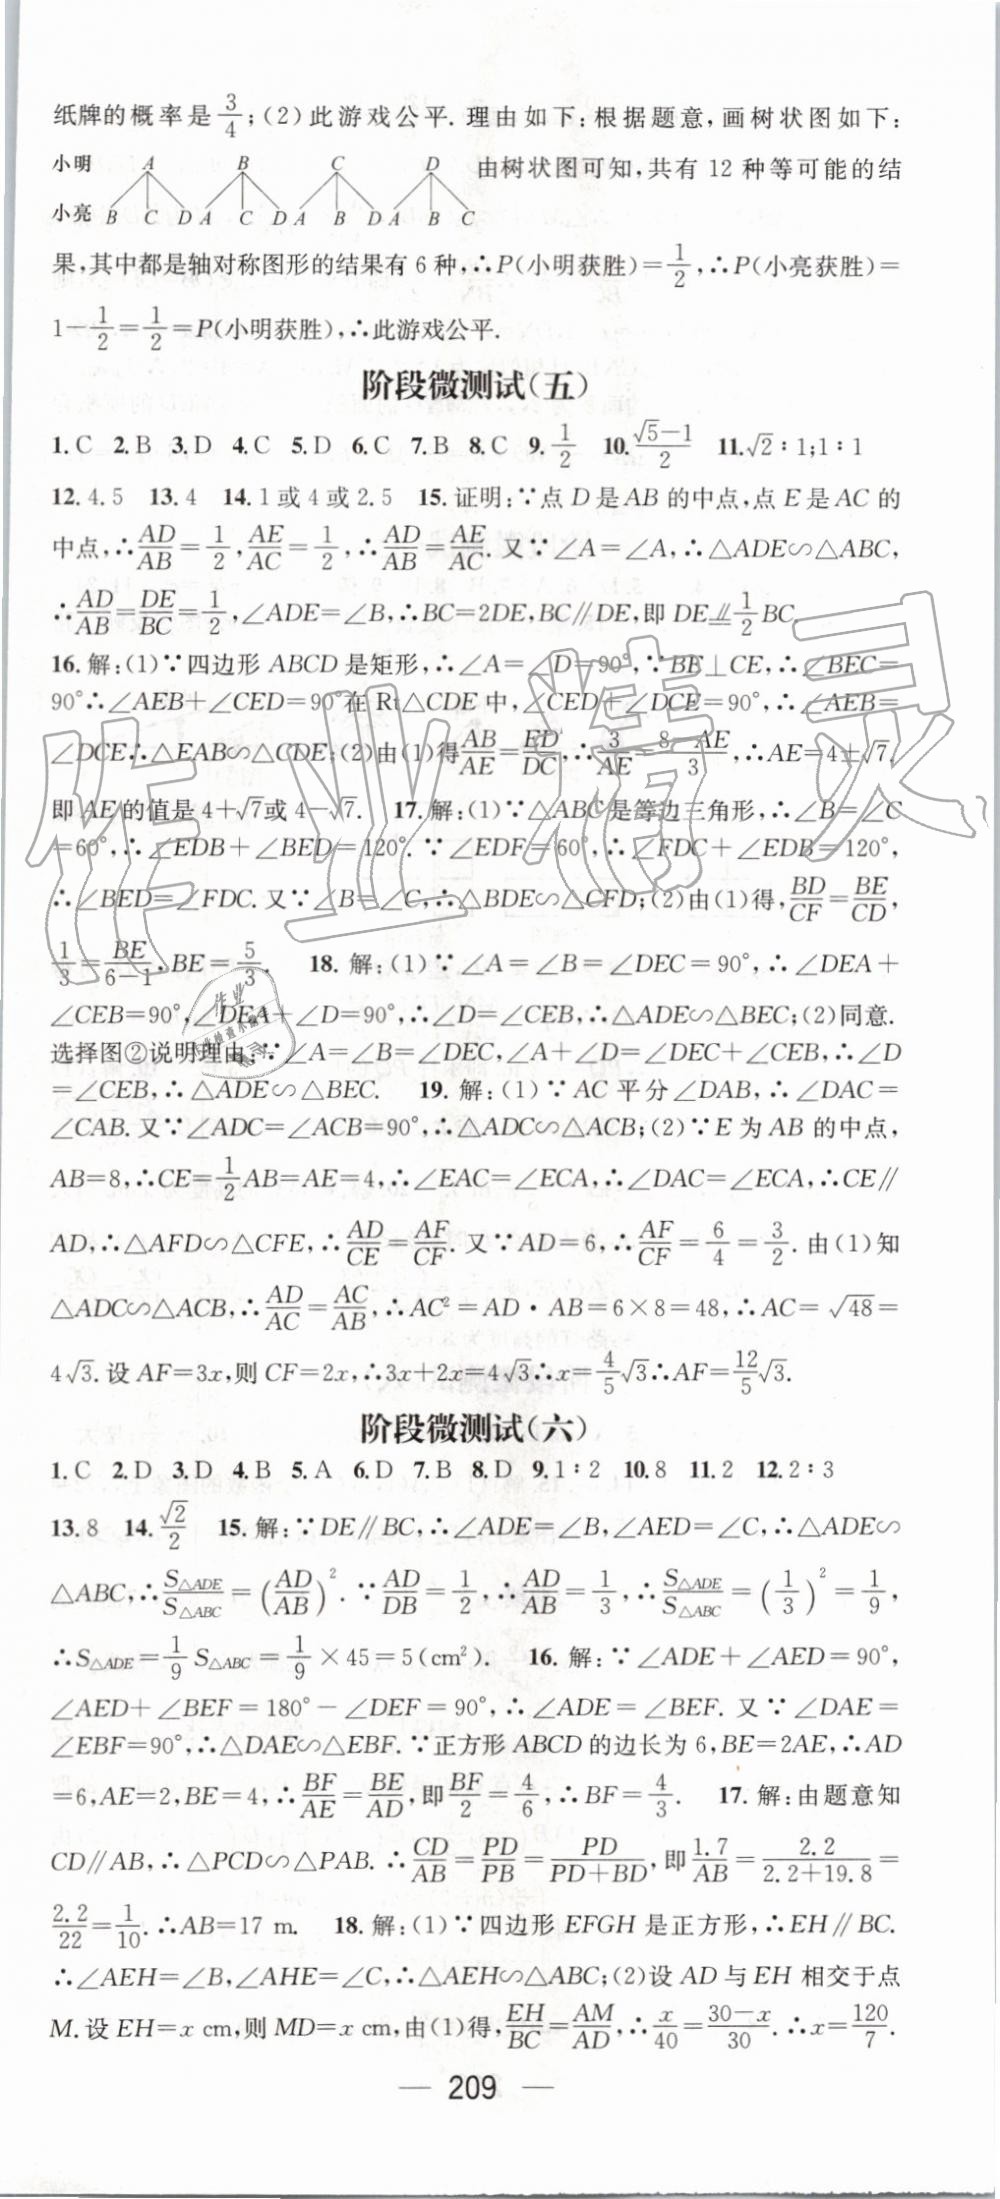 纸牌的概率是3/4;(2)此游戏公平.理由如下:根据题意,画树状图如下:
小明 A B C D 由树状图可知,共有12种等可能的结
小亮 B C D A C D A B D A B C
果,其中都是轴对称图形的结果有6种,∴P(小明获胜)=1/2,∴P(小亮获胜)=
1-1/2=1/2=P(小明获胜),∴此游戏公平.
阶段微测试(五)
1.C 2.B 3.D 4.C 5.D 6.C 7.B 8.C 9.1/2 10.(√5-1)/2 11.√2∶1;1∶1
12.4.5 13.4 14.1或4或2.5 15.证明:∵点D是AB的中点,点E是AC的
中点,∴AD/AB=1/2,AE/AC=1/2,∴AD/AB=AE/AC.又∵∠A=∠A,∴△ADE∽△ABC,
∴AD/AB=DE/BC=1/2,∠ADE=∠B,∴BC=2DE,BC∥DE,即DE⫽1/2BC.
16.解:(1)∵四边形ABCD是矩形,∴∠A=∠D=90°,∵BE⊥CE,∴∠BEC=
90°∴∠AEB+∠CED=90°在Rt△CDE中,∠CED+∠DCE=90°,∴∠AEB=
∠DCE∴△EAB∽△CDE;(2)由(1)得AB/AE=ED/DC,∴3/AE=(8-AE)/3,∴AE=4±√7,
即AE的值是4+√7或4-√7. 17.解:(1)∵△ABC是等边三角形,∴∠B=∠C
=60°,∴∠EDB+∠BED=120°.∵∠EDF=60°,∴∠FDC+∠EDB=120°,
∴∠BED=∠FDC.又∵∠B=∠C,∴△BDE∽△CFD;(2)由(1)得,BD/CF=BE/CD,
1/3=BE/(6-1),BE=5/3. 18.解:(1)∵∠A=∠B=∠DEC=90°,∴∠DEA+
∠CEB=90°,∠DEA+∠D=90°,∴∠D=∠CEB,∴△ADE∽△BEC;(2)同意.
选择图②说明理由:∵∠A=∠B=∠DEC,∠A+∠D=∠DEC+∠CEB,∴∠D
=∠CEB,∴△ADE∽△BEC. 19.解:(1)∵AC平分∠DAB,∴∠DAC=
∠CAB.又∵∠ADC=∠ACB=90°,∴△ADC∽△ACB;(2)∵E为AB的中点,
AB=8,∴CE=1/2AB=AE=4,∴∠EAC=∠ECA,∴∠DAC=∠ECA,∴CE∥
AD,∴△AFD∽△CFE,∴AD/CE=AF/CF.又∵AD=6,∴AF/CF=6/4=3/2.由(1)知
△ADC∽△ACB,∴AD/AC=AC/AB,∴AC²=AD·AB=6×8=48,∴AC=√48=
4√3.设AF=3x,则CF=2x,∴3x+2x=4√3∴x=4/5√3∴AF=12/5√3.
阶段微测试(六)
1.C 2.D 3.D 4.B 5.A 6.D 7.B 8.D 9.1∶2 10.8 11.2 12.2∶3
13.8 14.√2/2 15.解:∵DE∥BC,∴∠ADE=∠B,∠AED=∠C,∴△ADE∽
△ABC,∴S△ADE/S△ABC=(AD/AB)².∵AD/DB=1/2,∴AD/AB=1/3,∴S△ADE/S△ABC=(1/3)²=1/9,
∴S△ADE=1/9S△ABC=1/9×45=5(cm²). 16.解:∵∠ADE+∠AED=90°,
∠AED+∠BEF=180°-∠DEF=90°,∴∠ADE=∠BEF.又∵∠DAE=
∠EBF=90°,∴△DAE∽△EBF.∵正方形ABCD的边长为6,BE=2AE,∴AD
=6,AE=2,BE=4,∴BF/AE=BE/AD,即BF/2=4/6,∴BF=4/3. 17.解:由题意知
CD∥AB,∴△PCD∽△PAB.∴CD/AB=PD/PB=PD/(PD+BD),即1.7/AB=2.2/(2.2+19.8)=
2.2/22=1/10.∴AB=17 m. 18.解:(1)∵四边形EFGH是正方形,∴EH∥BC.
∴∠AEH=∠B,∠AHE=∠C,∴△AEH∽△ABC;(2)设AD与EH相交于点
M.设EH=x cm,则MD=x cm,由(1)得,EH/BC=AM/AD,∴x/40=(30-x)/30.∴x=120/7.
— 209 —
作业精灵